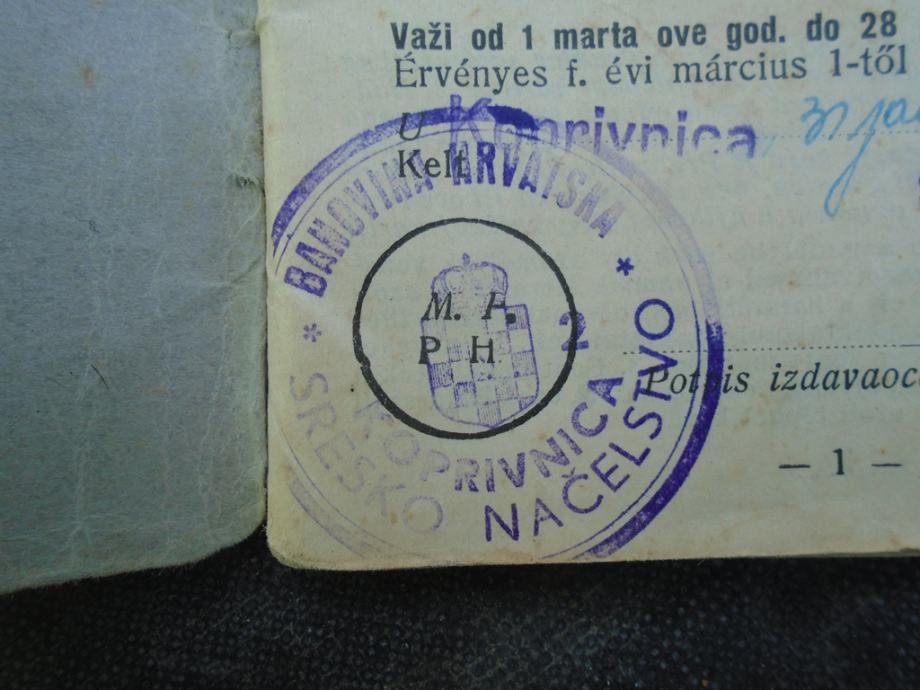 Važi od 1 marta ove god. do 28
Érvényes f. évi március 1-től
U Koprivnica, 31
Kelt
BANOVINA HRVATSKA
M. P.
P H
2
* SRESKO NAČELSTVO *
KOPRIVNICA
Potpis izdavaoc
— 1 —